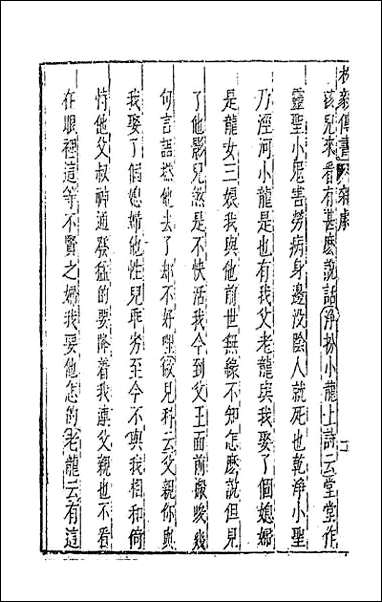 柳毅傳書 雜劇
孩兒來看有甚麽說話淨扮小龍上詩云堂堂作
靈聖小鬼害勞病身邊没陰人就死也乾淨小聖
乃涇河小龍是也有我父老龍與我娶了個媳婦
是龍女三娘我與他前世無緣不知怎麽說但見
了他影兒煞是不快活我今到父王面前嚴峻幾
句言語搽他去了却不好哩做見科云父親你與
我娶了個媳婦他性兒乖劣至今不與我相和倚
恃他父叔神通發猛的要降着我連父親也不看
在眼裡這等不賢之婦我要他怎的老龍云有這